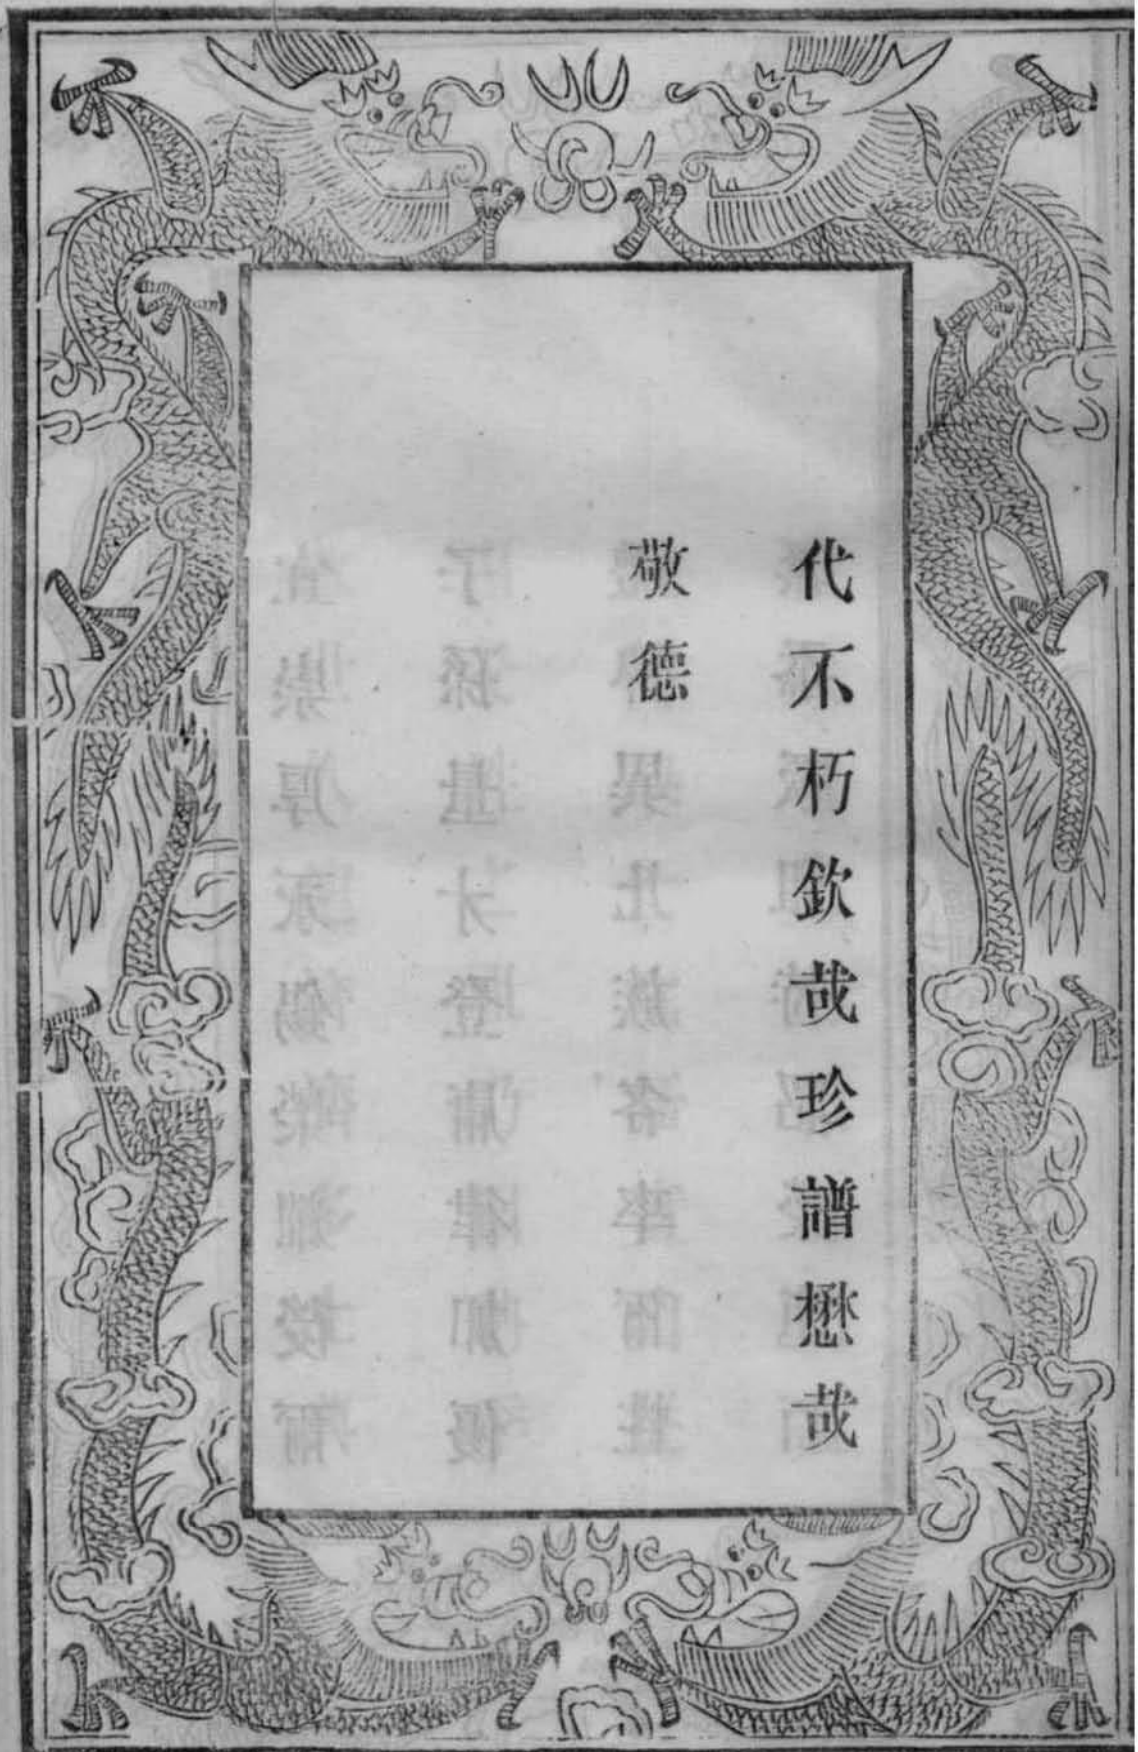 代不朽欽哉珍譜懋哉
敬德